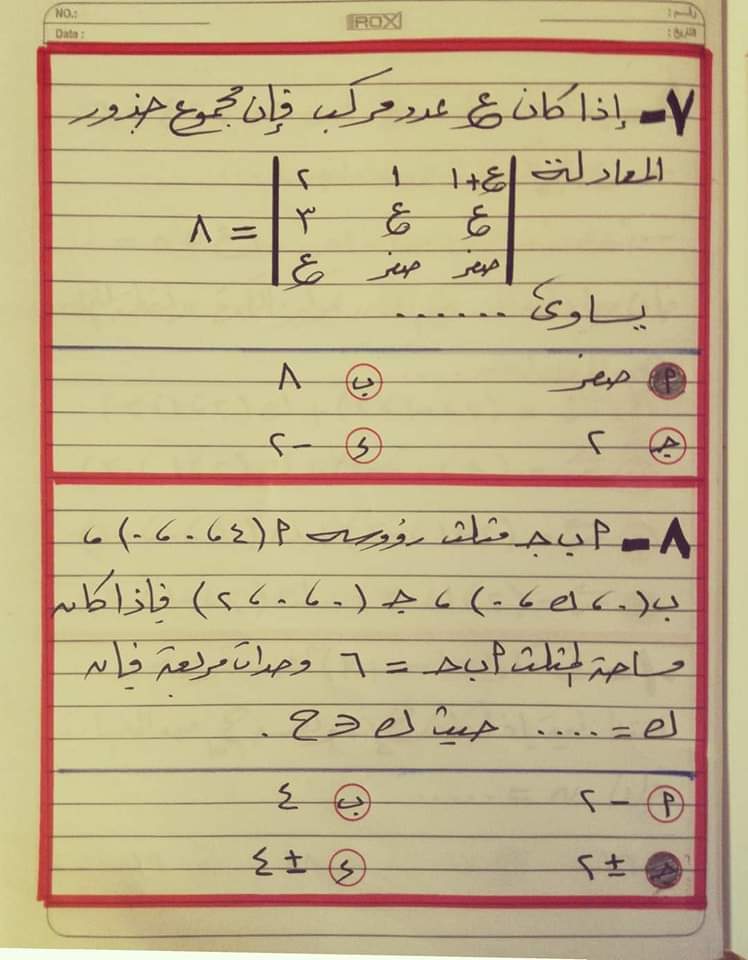 NO.:
Date :
ROX
رقم :
التاريخ :
٧- إذا كان ع عدد مركب فإن مجموع جذور
المعادلة
| ع+١ ١ ٢ |
| ع ع ٣ | = ٨
| صفر صفر ع |
يساوى ......
(P) صفر (ب) ٨
(جـ) ٢ (د) -٢
٨- P ب جـ مثلث رؤوسه P (٤ ، ٠ ، ٠) ،
ب (٠ ، ك ، ٠) ، جـ (٠ ، ٠ ، ٢) فإذا كان
مساحة المثلث P ب جـ = ٦ وحدات مربعة فإن
ك = .... حيث ك ∈ ح .
(P) -٢ (ب) ٤
(جـ) ± ٢ (د) ± ٤